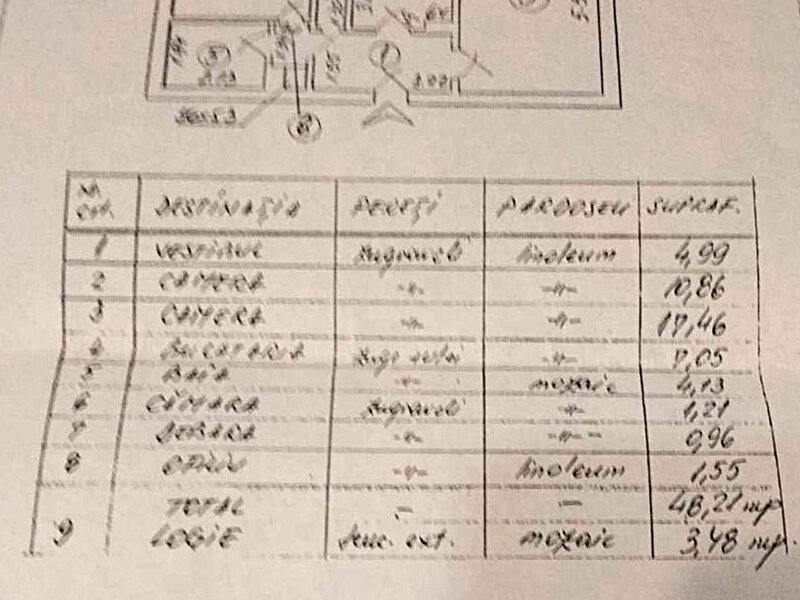 1,95
3.00
Nr. crt. DESTINAȚIA PEREȚI PARDOSELI SUPRAF.
1 VESTIBUL Zugraveli linoleum 4,99
2 CAMERA -"- -"- 10,86
3 CAMERA -"- -"- 17,46
4 BUCATARIA -"- 7,05
5 BAIA -"- mozaic 4,13
6 CĂMARA Zugraveli -"- 1,21
7 DEBARA -"- -"- 0,96
8 OFICIU -"- linoleum 1,55
TOTAL - - 48,21 mp
9 LOGIE ext. mozaic 3,48 mp.